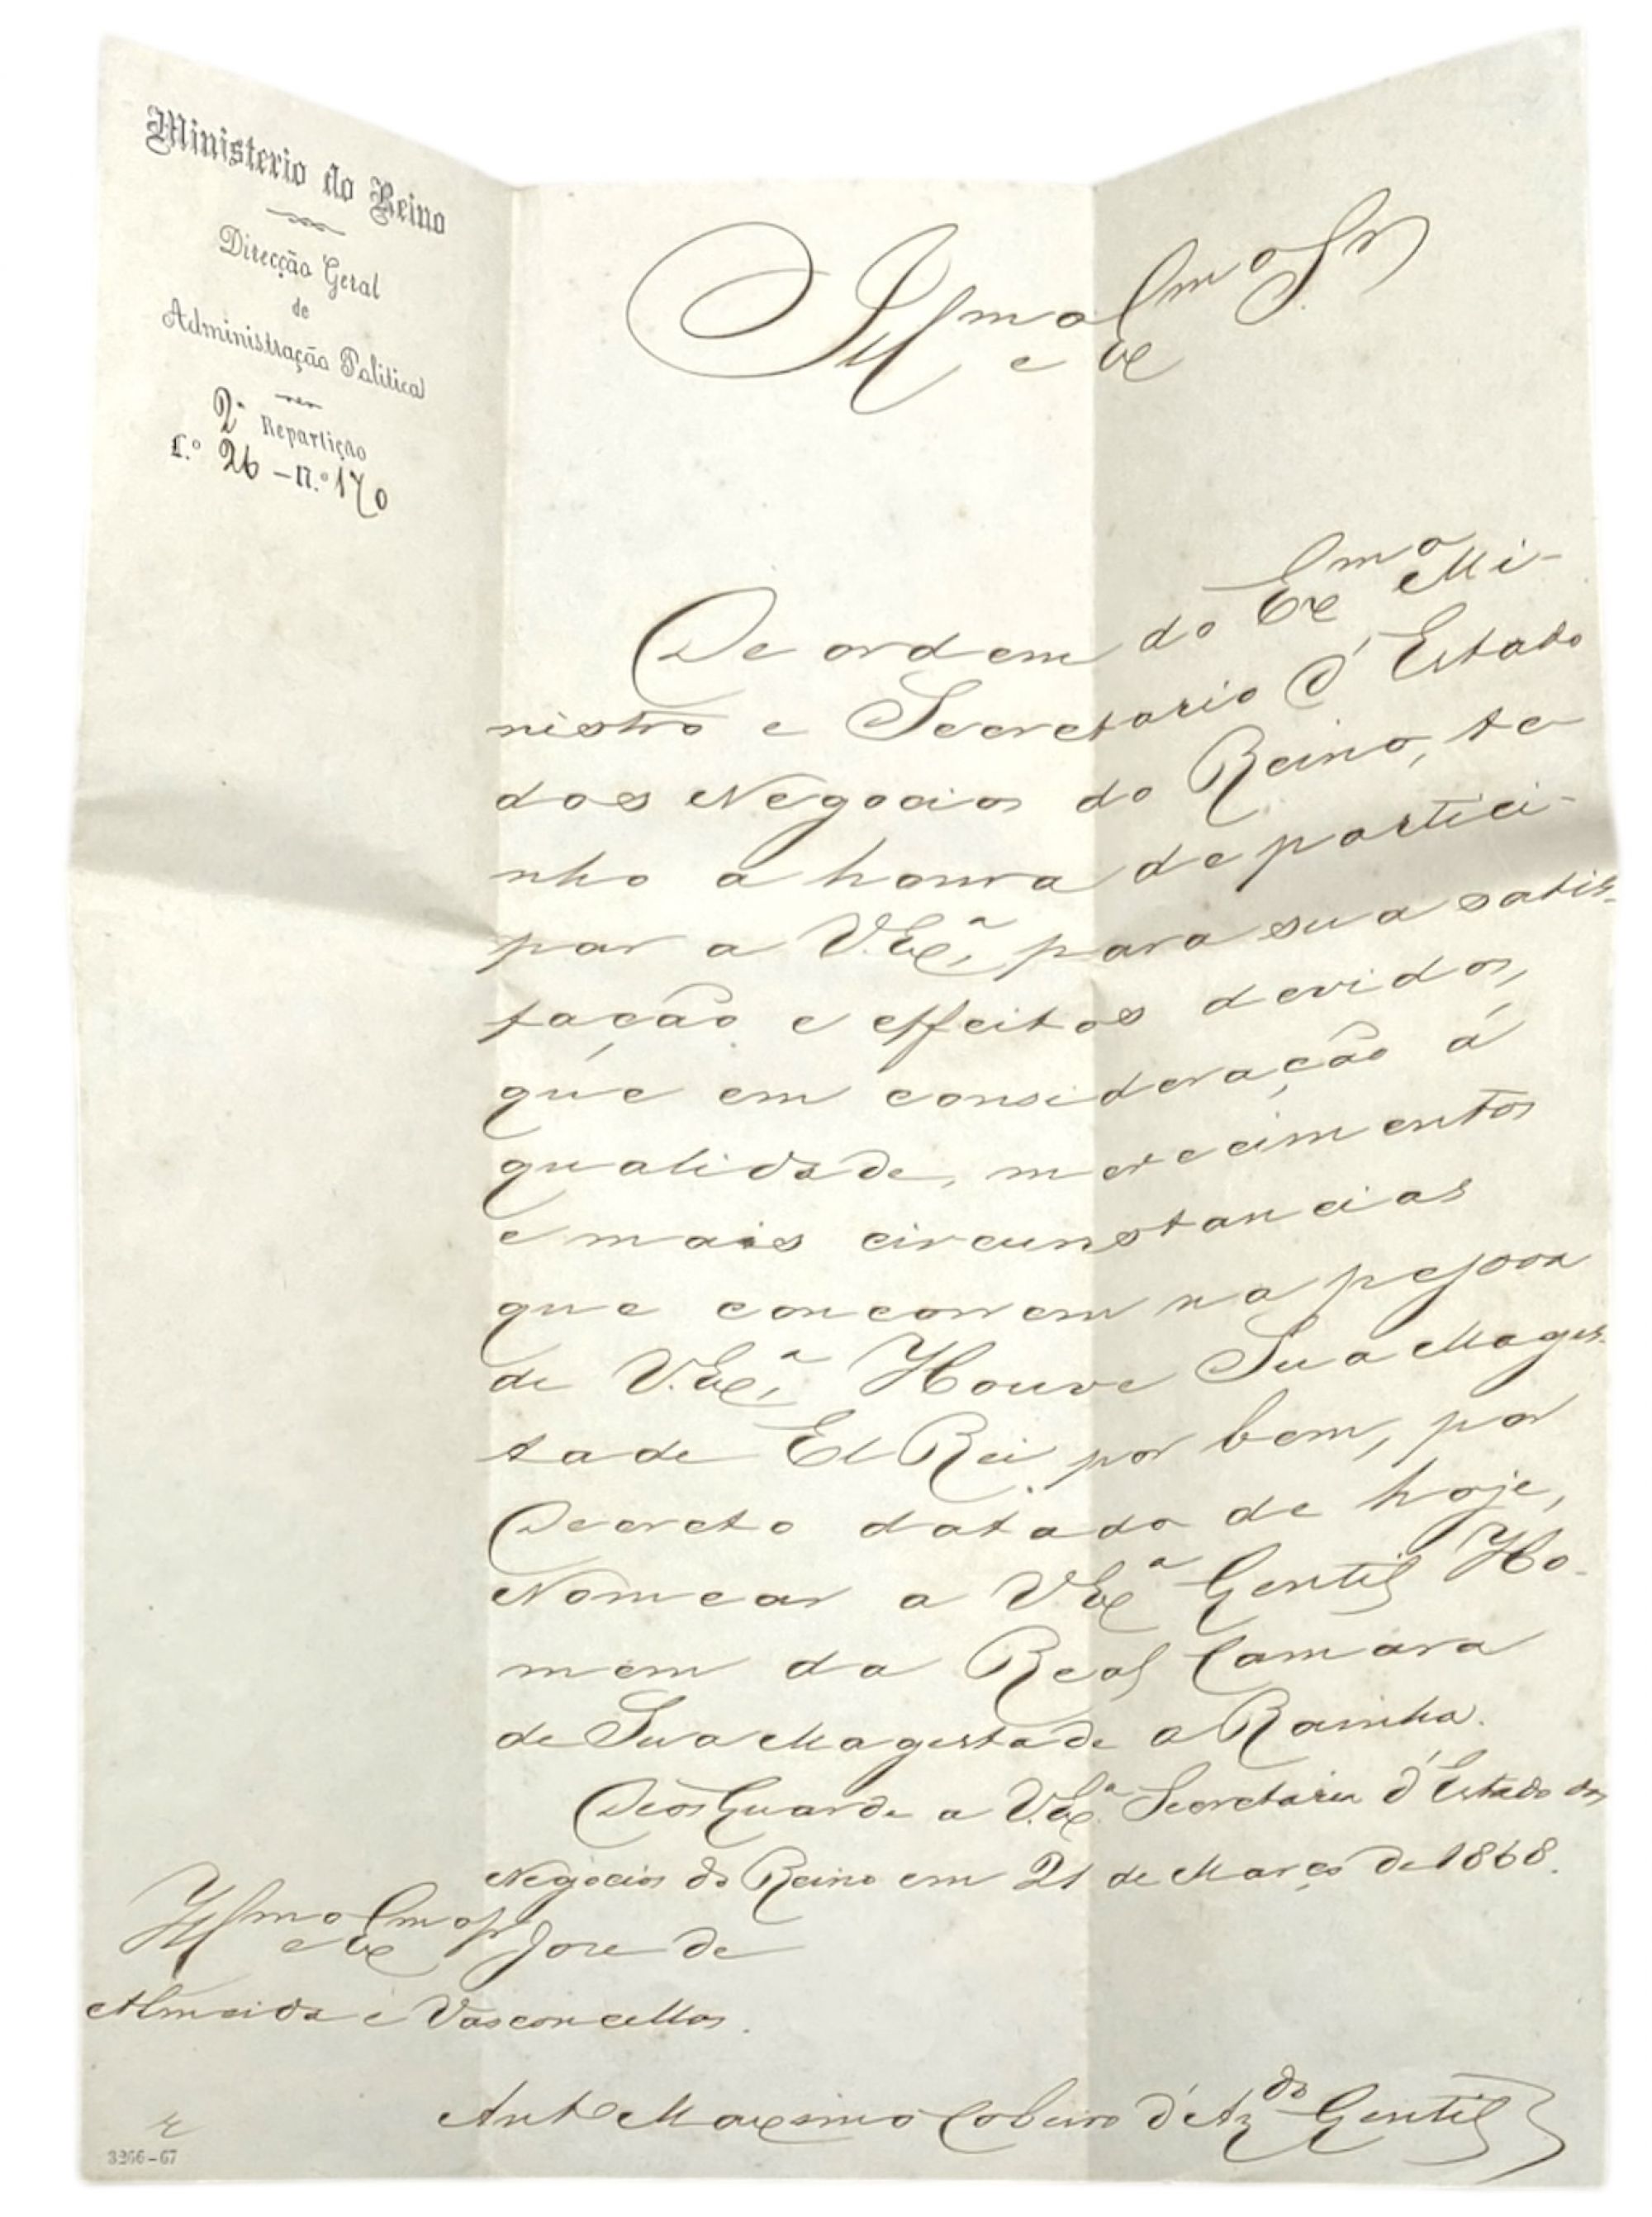 Ministerio do Reino
Direcção Geral
de
Administração Politica
2ª Repartição
L.º 26 - N.º 170
Illmo e Exmo Sr
De ordem do Exmo Mi-
nistro e Secretario d'Estado
dos Negocios do Reino, te
nho a honra de partici-
par a V. Exª, para sua satis-
fação e effeitos devidos,
que em consideração á
qualidade, merecimentos
e mais circunstancias
que concorrem na pessoa
de V. Exª, Houve Sua Mages-
tade El Rei por bem, por
Decreto datado de hoje,
Nomear a V Exª Gentil Ho-
mem da Real Camara
de Sua Magestade a Rainha.
Deos Guarde a V. Exª. Secretaria d'Estado dos
Negocios do Reino em 21 de Março de 1868.
Illmo e Exmo Sr Jose de
Almeida e Vasconcellos.
Antº Maximo d'Azdº Gentil
3266-67